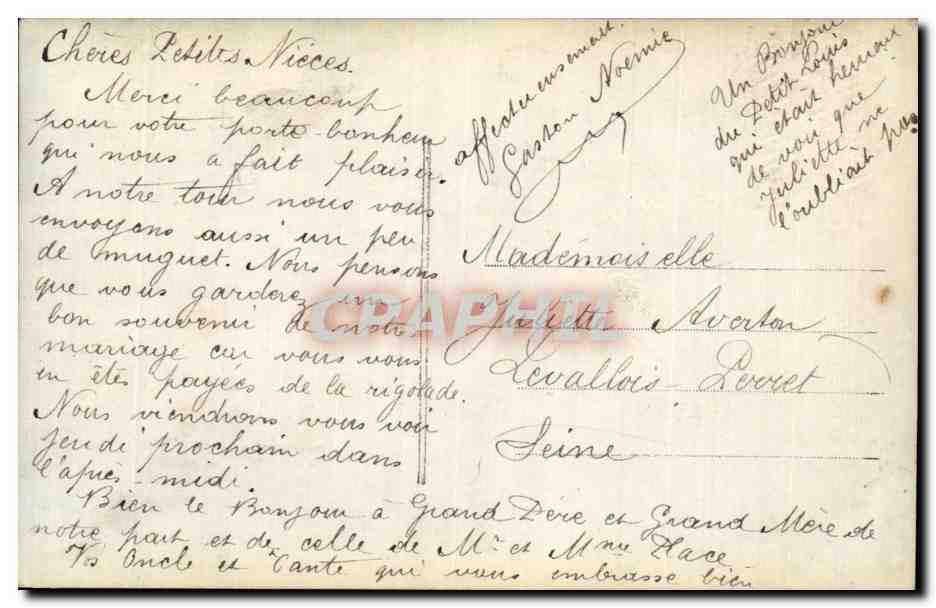 Chères Petites Nièces.
Merci beaucoup
pour votre porte-bonheur
qui nous a fait plaisir.
A notre tour nous vous
envoyons aussi un peu
de muguet. Nous pensons
que vous garderez un
bon souvenir de notre
mariage car vous vous
en êtes payées de la rigolade.
Nous viendrons vous voir
jeudi prochain dans
l'après-midi.
Bien le Bonjour à Grand Père et Grand Mère de
notre part et de celle de Mr et Mme Place
Vos Oncle et Tante qui vous embrasse bien
affectueusement.
Gaston Noémie
Un Bonjour
du Petit Louis
qui était heureux
de voir que
Juliette ne
l'oubliait pas
Mademoiselle
Juliette Averton
Levallois-Perret
Seine
CRAPHTL